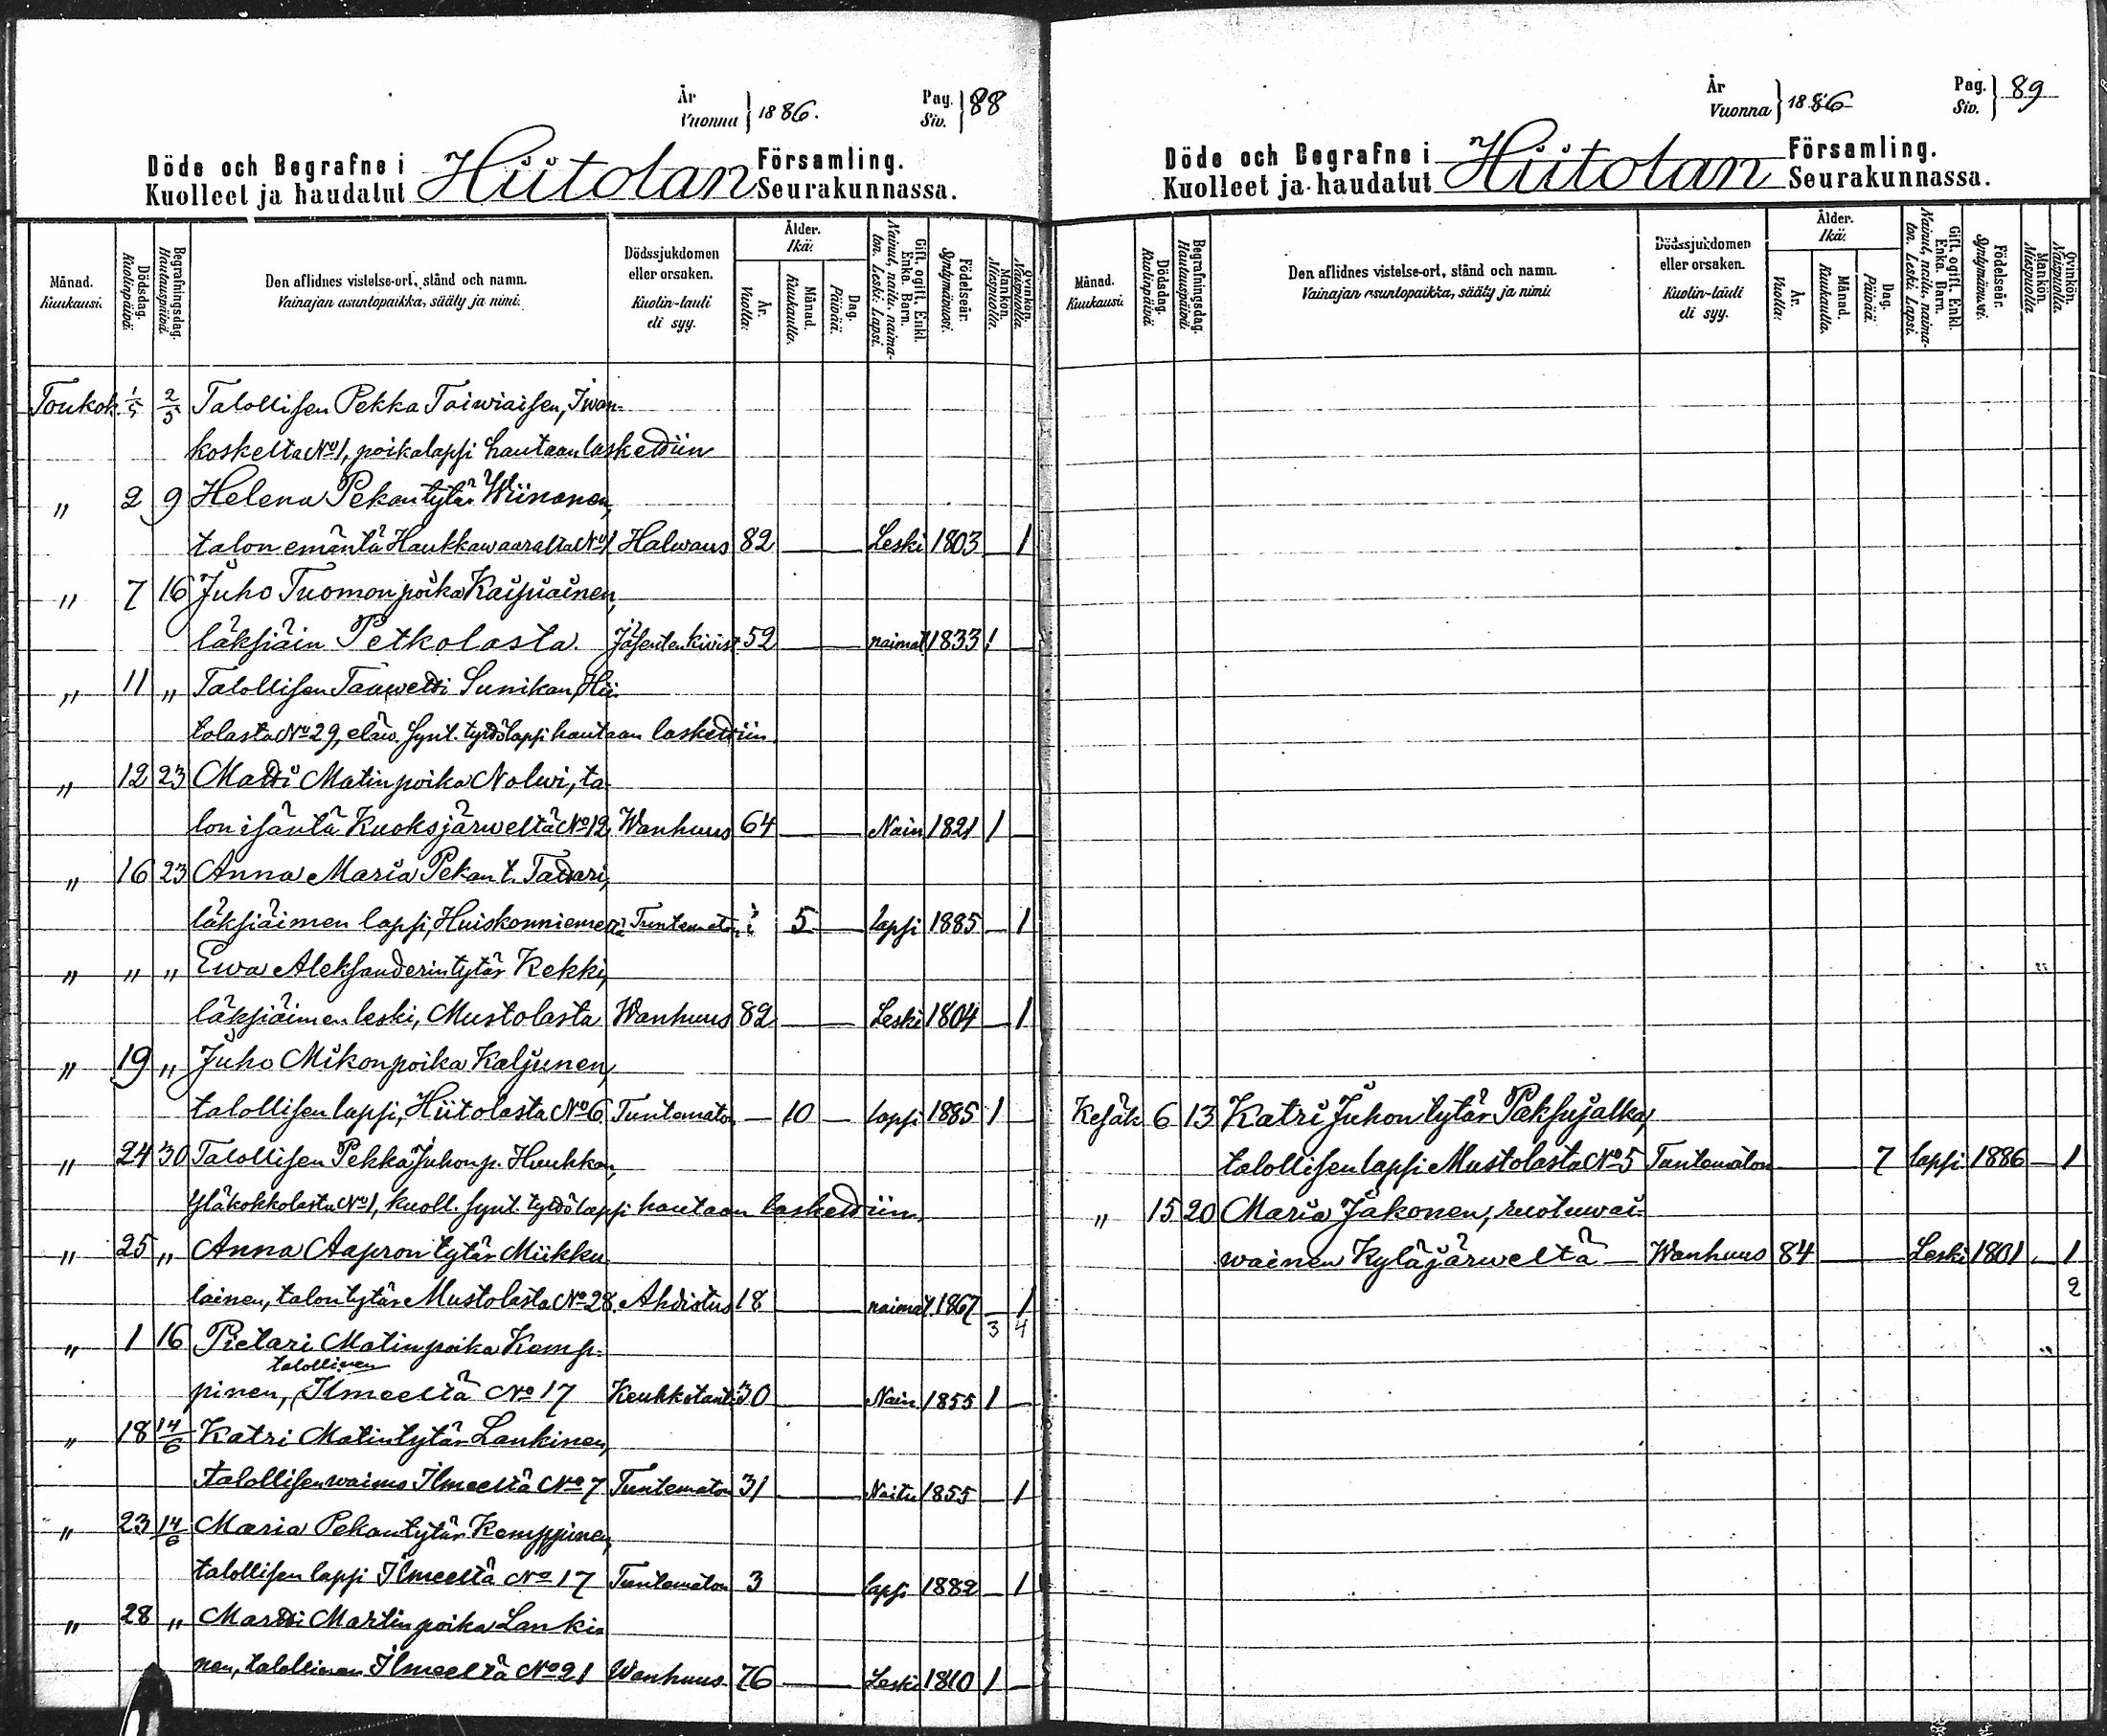 År
Vuonna } 1886.
Pag.
Siv. } 88
Döde och Begrafne i Hiitolan Församling.
Kuolleet ja haudatut Seurakunnassa.
Månad. Kuukausi.
Dödsdag. Kuolinpäivä
Begrafningsdag. Hautauspäivä.
Den aflidnes vistelse-ort, stånd och namn.
Vainajan asuntopaikka, sääty ja nimi.
Dödssjukdomen eller orsaken.
Kuolin-tauti eli syy.
Ålder. Ikä.
År. Vuotta.
Månad. Kuukautta.
Dag. Päivää.
Gift, ogift. Enkl. Enka. Barn.
Nainut, naitu, naimaton. Leski. Lapsi.
Födelseår. Syntymävuosi.
Mankön. Miespuolia.
Qvinkön. Naispuolia.
Toukok. 1/5 2/5 Talollisen Pekka Toiwiaisen, Iwan-
koskelta No 1, poikalapsi hautaan laskettiin
" 2 9 Helena Pekantytär Wiinonen,
talon emäntä Haukkawaaralta No 1 Halwaus 82 — Leski 1803 — 1
" 7 16 Juho Tuomonpoika Kaipiainen,
läksiäin Petkolasta. Jäsentenkivist 52 — naimat 1833 1 —
" 11 " Talollisen Taawetti Sunikan, Hii-
tolasta No 29, eläw. synt. tyttölapsi hautaan laskettiin
" 12 23 Matti Matinpoika Nolwi, ta-
lon isäntä Kuoksjärweltä No 12 Wanhuus 64 — Nain 1821 1 —
" 16 23 Anna Maria Pekan t. Tattari,
läksiäimen lapsi, Huiskonniemeltä Tuntematon 5 — lapsi 1885 — 1
" " " Ewa Aleksanderintytär Kekki,
läksiäimen leski, Mustolasta Wanhuus 82 — Leski 1804 — 1
" 19 " Juho Mikonpoika Kaljunen,
talollisen lapsi, Hiitolasta No 6. Tuntematon — 10 — lapsi 1885 1 —
" 24 30 Talollisen Pekka Juhonp. Huuhkan,
Yläkokkolasta No 1, kuoll. synt. tyttölapsi hautaan laskettiin
" 25 " Anna Aapron tytär Miikku-
lainen, talon tytär Mustolasta No 28. Ahdistus 18 — naimat. 1867 — 1
3 4
" 1 16 Pietari Matinpoika Kemp-
talollinen
pinen, Ilmeeltä No 17 Keuhkotauti 30 — Nain 1855 1 —
" 18 14/6 Katri Matintytär Lankinen,
talollisen waimo Ilmeeltä No 7 Tuntematon 31 — Naitu 1855 — 1
" 23 14/6 Maria Pekantytär Kemppinen,
talollisen lapsi Ilmeeltä No 17 Tuntematon 3 — lapsi 1882 — 1
" 28 " Martti Martinpoika Lanki-
nen, talollinen Ilmeeltä No 21 Wanhuus 76 — Leski 1810 1 —
År
Vuonna } 1886
Pag.
Siv. } 89
Döde och Begrafne i Hiitolan Församling.
Kuolleet ja haudatut Seurakunnassa.
Månad. Kuukausi.
Dödsdag. Kuolinpäivä
Begrafningsdag. Hautauspäivä.
Den aflidnes vistelse-ort, stånd och namn.
Vainajan asuntopaikka, sääty ja nimi.
Dödssjukdomen eller orsaken.
Kuolin-tauti eli syy.
Ålder. Ikä.
År. Vuotta.
Månad. Kuukautta.
Dag. Päivää.
Gift, ogift. Enkl. Enka. Barn.
Nainut, naitu, naimaton. Leski. Lapsi.
Födelseår. Syntymävuosi.
Mankön. Miespuolia
Qvinkön. Naispuolia.
Kesäk 6 13 Katri Juhontytär Paksujalka,
talollisen lapsi Mustolasta No 5 Tuntematon — 7 lapsi 1886 — 1
" 15 20 Maria Jäkonen, ruotuwai-
wainen Kyläjärweltä — Wanhuus 84 — Leski 1801 — 1
2